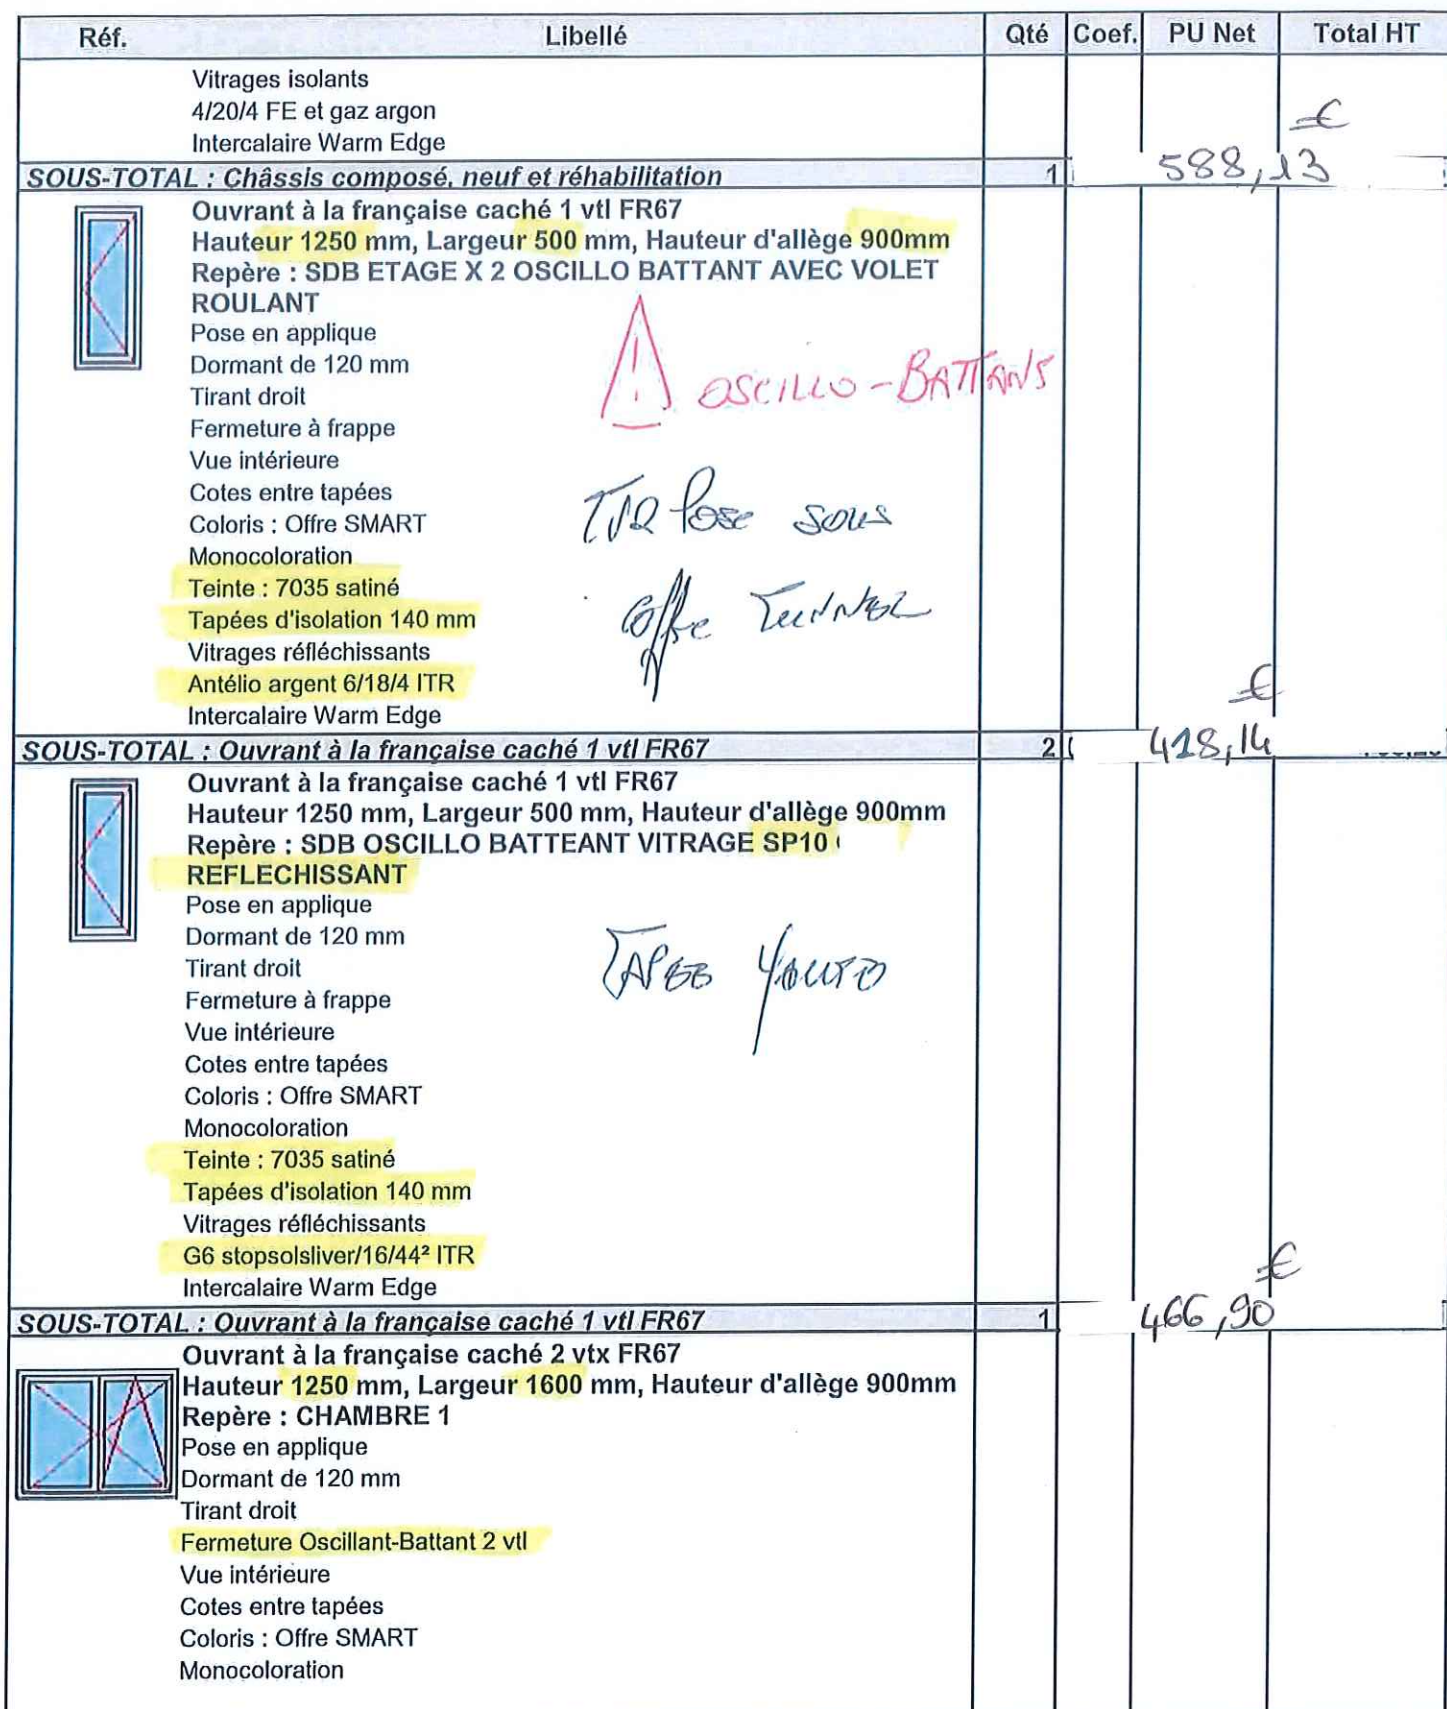 Réf. Libellé Qté Coef. PU Net Total HT
Vitrages isolants
4/20/4 FE et gaz argon
Intercalaire Warm Edge
€
SOUS-TOTAL : Châssis composé, neuf et réhabilitation 1 588,13
Ouvrant à la française caché 1 vtl FR67
Hauteur 1250 mm, Largeur 500 mm, Hauteur d'allège 900mm
Repère : SDB ETAGE X 2 OSCILLO BATTANT AVEC VOLET
ROULANT
Pose en applique
Dormant de 120 mm
Tirant droit
OSCILLO-BATTANS
Fermeture à frappe
Vue intérieure
Cotes entre tapées
Coloris : Offre SMART
Pose sous
Monocoloration
Teinte : 7035 satiné
Tapées d'isolation 140 mm
Coffre Tunnel
Vitrages réfléchissants
Antélio argent 6/18/4 ITR
Intercalaire Warm Edge
€
SOUS-TOTAL : Ouvrant à la française caché 1 vtl FR67 2 418,14
Ouvrant à la française caché 1 vtl FR67
Hauteur 1250 mm, Largeur 500 mm, Hauteur d'allège 900mm
Repère : SDB OSCILLO BATTEANT VITRAGE SP10
REFLECHISSANT
Pose en applique
Dormant de 120 mm
Tirant droit
TAPEE
Fermeture à frappe
Vue intérieure
Cotes entre tapées
Coloris : Offre SMART
Monocoloration
Teinte : 7035 satiné
Tapées d'isolation 140 mm
Vitrages réfléchissants
G6 stopsolsliver/16/44² ITR
Intercalaire Warm Edge
€
SOUS-TOTAL : Ouvrant à la française caché 1 vtl FR67 1 466,90
Ouvrant à la française caché 2 vtx FR67
Hauteur 1250 mm, Largeur 1600 mm, Hauteur d'allège 900mm
Repère : CHAMBRE 1
Pose en applique
Dormant de 120 mm
Tirant droit
Fermeture Oscillant-Battant 2 vtl
Vue intérieure
Cotes entre tapées
Coloris : Offre SMART
Monocoloration